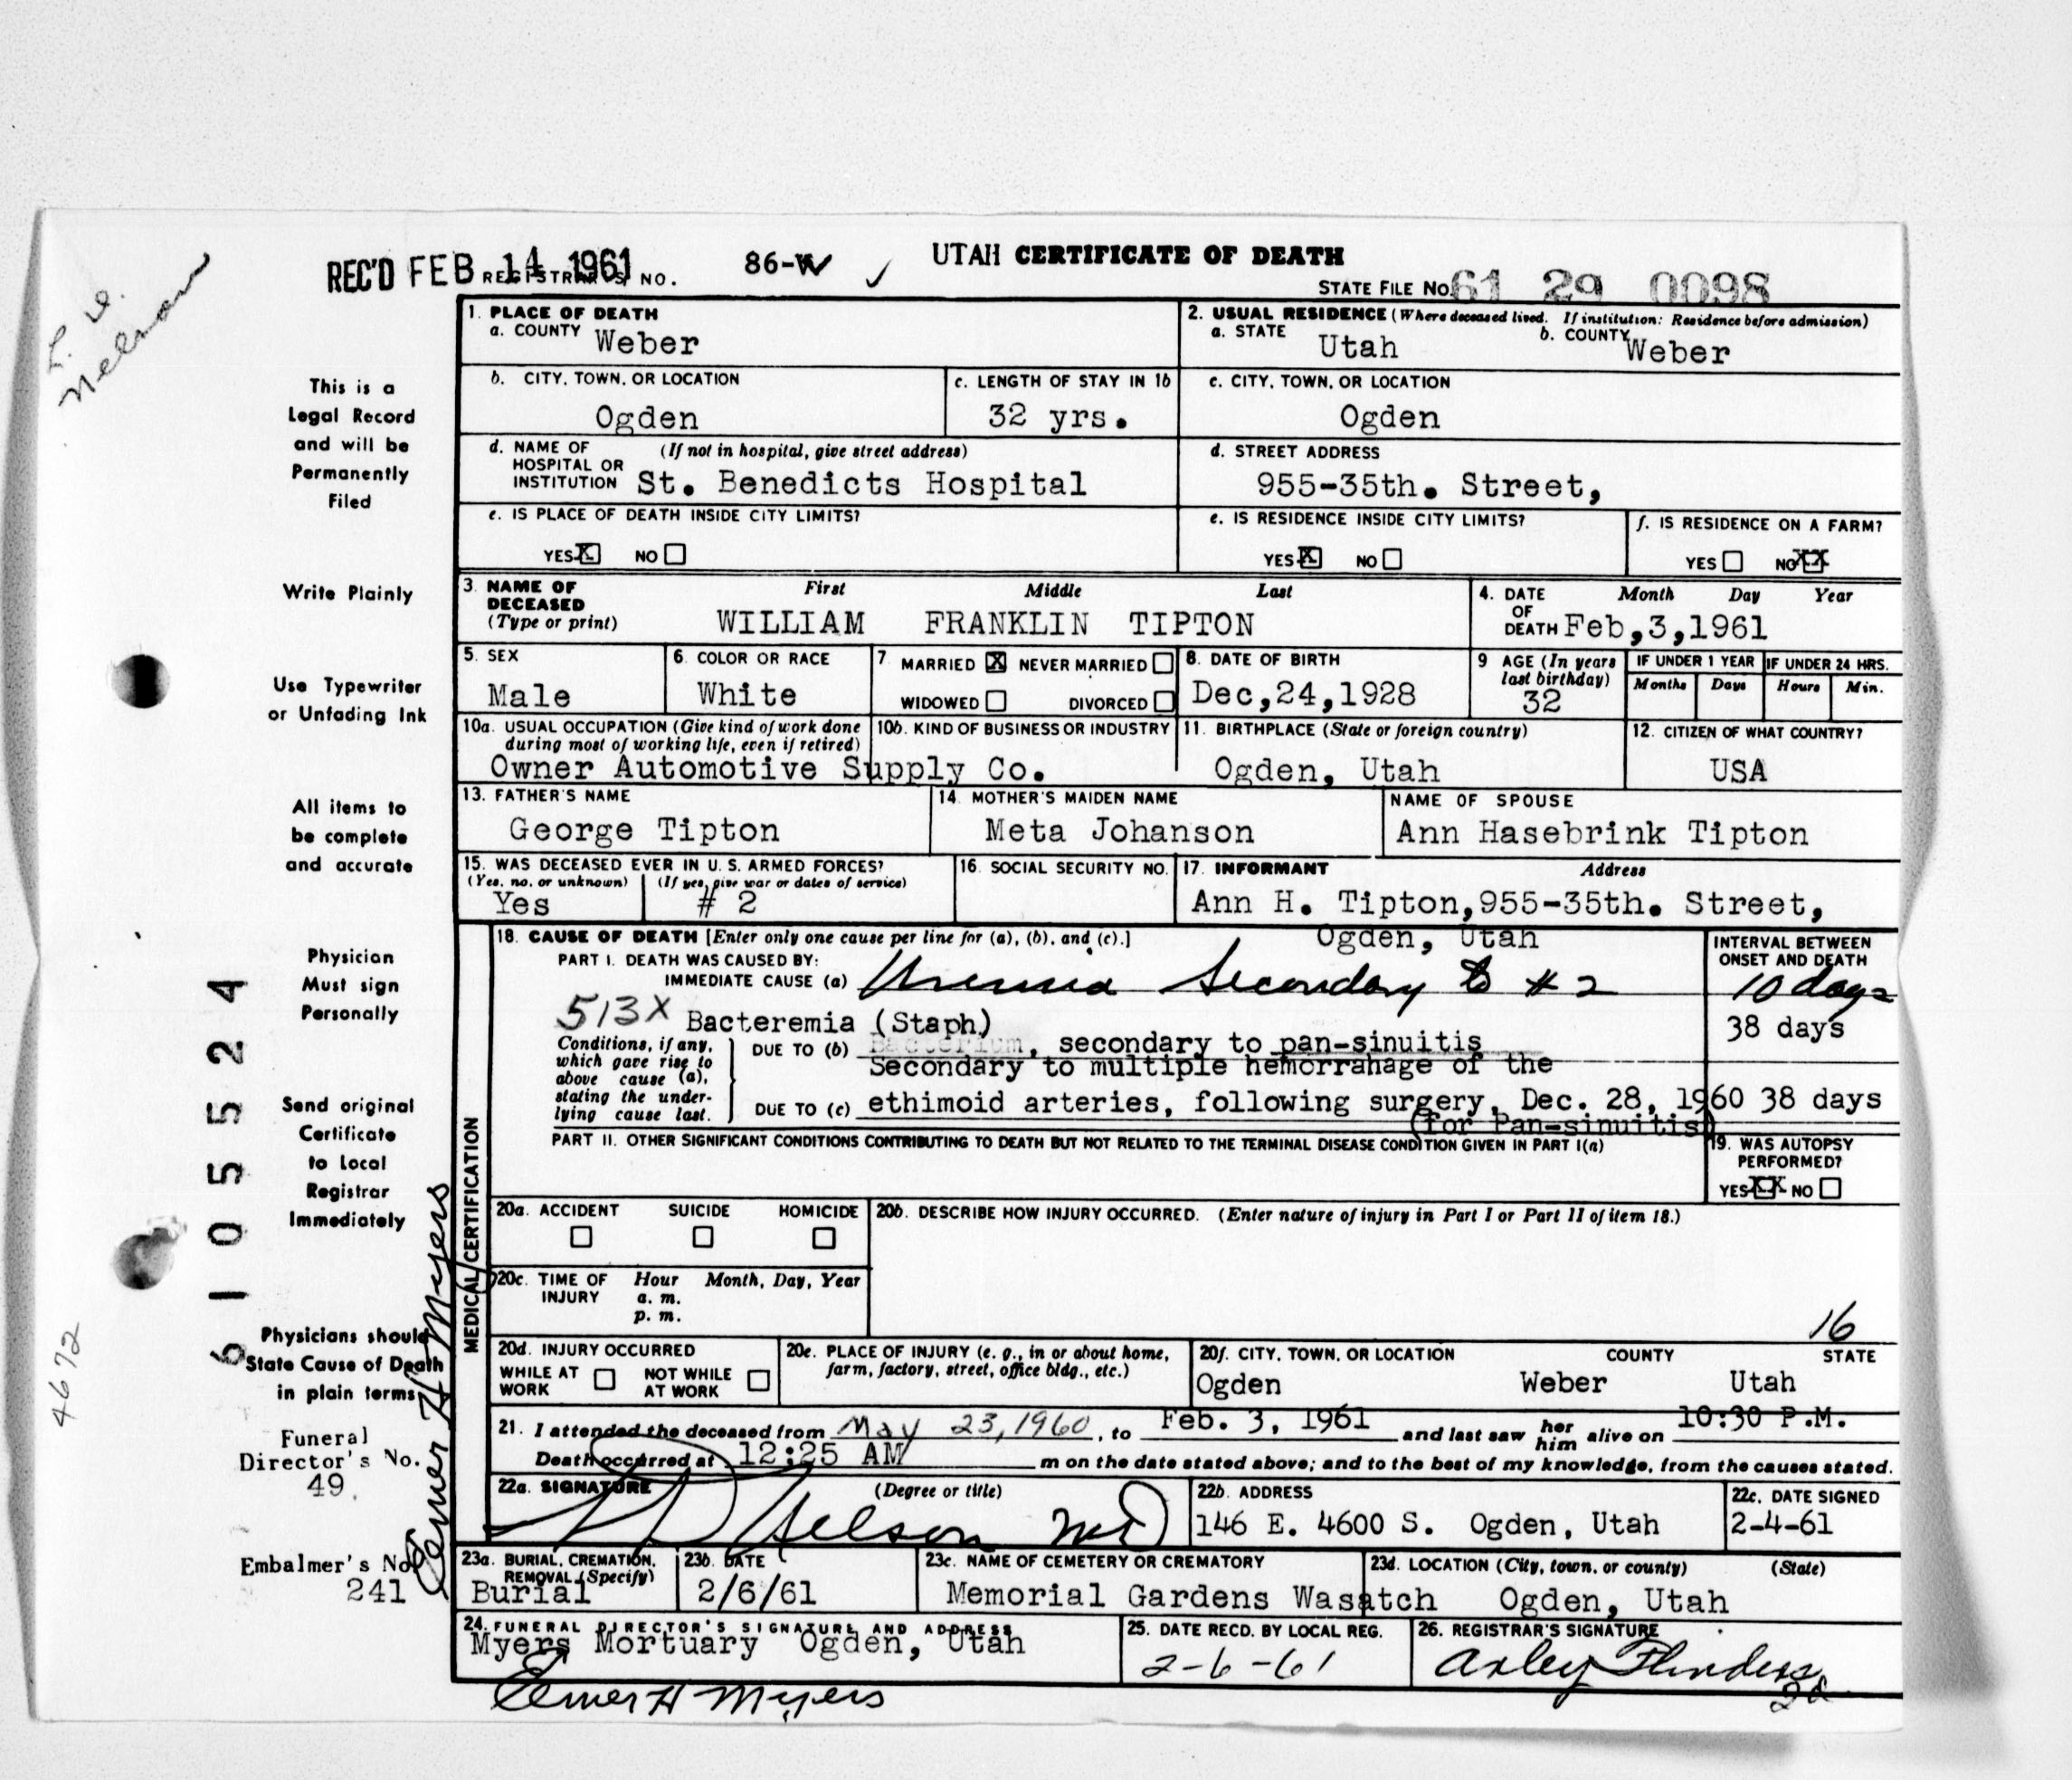 REC'D FEB 14 1961 REGISTRAR'S NO. 86-W ✓
UTAH CERTIFICATE OF DEATH
STATE FILE NO. 61 29 0098
L. D.
Nelson
This is a
Legal Record
and will be
Permanently
Filed
Write Plainly
Use Typewriter
or Unfading Ink
All items to
be complete
and accurate
Physician
Must sign
Personally
Send original
Certificate
to Local
Registrar
Immediately
Physicians should
State Cause of Death
in plain terms
Funeral
Director's No.
49
Embalmer's No.
241
6105524
4672
Elmer H Myers
1. PLACE OF DEATH
a. COUNTY Weber
2. USUAL RESIDENCE (Where deceased lived. If institution: Residence before admission)
a. STATE Utah b. COUNTY Weber
b. CITY, TOWN, OR LOCATION Ogden
c. LENGTH OF STAY IN 1b 32 yrs.
c. CITY, TOWN, OR LOCATION Ogden
d. NAME OF HOSPITAL OR INSTITUTION (If not in hospital, give street address) St. Benedicts Hospital
d. STREET ADDRESS 955-35th. Street,
e. IS PLACE OF DEATH INSIDE CITY LIMITS?
YES X NO
e. IS RESIDENCE INSIDE CITY LIMITS?
YES X NO
f. IS RESIDENCE ON A FARM?
YES NO XX
3. NAME OF DECEASED (Type or print) First Middle Last
WILLIAM FRANKLIN TIPTON
4. DATE OF DEATH Month Day Year
Feb,3,1961
5. SEX Male
6. COLOR OR RACE White
7 MARRIED X NEVER MARRIED
WIDOWED DIVORCED
8. DATE OF BIRTH Dec,24,1928
9 AGE (In years last birthday) 32
IF UNDER 1 YEAR Months Days
IF UNDER 24 HRS. Hours Min.
10a. USUAL OCCUPATION (Give kind of work done during most of working life, even if retired)
10b. KIND OF BUSINESS OR INDUSTRY
Owner Automotive Supply Co.
11. BIRTHPLACE (State or foreign country) Ogden, Utah
12. CITIZEN OF WHAT COUNTRY? USA
13. FATHER'S NAME George Tipton
14. MOTHER'S MAIDEN NAME Meta Johanson
NAME OF SPOUSE Ann Hasebrink Tipton
15. WAS DECEASED EVER IN U. S. ARMED FORCES?
(Yes, no, or unknown) (If yes, give war or dates of service)
Yes # 2
16. SOCIAL SECURITY NO.
17. INFORMANT Address
Ann H. Tipton,955-35th. Street,
Ogden, Utah
MEDICAL CERTIFICATION
18. CAUSE OF DEATH [Enter only one cause per line for (a), (b), and (c).]
INTERVAL BETWEEN ONSET AND DEATH
PART I. DEATH WAS CAUSED BY:
IMMEDIATE CAUSE (a) Uremia Secondary to # 2 10 days
513X Bacteremia (Staph.) 38 days
Conditions, if any, which gave rise to above cause (a), stating the underlying cause last.
DUE TO (b) Bacterium, secondary to pan-sinuitis
Secondary to multiple hemorrahage of the
DUE TO (c) ethimoid arteries, following surgery, Dec. 28, 1960 38 days
(for Pan-sinuitis)
PART II. OTHER SIGNIFICANT CONDITIONS CONTRIBUTING TO DEATH BUT NOT RELATED TO THE TERMINAL DISEASE CONDITION GIVEN IN PART I(a)
19. WAS AUTOPSY PERFORMED?
YES XX NO
20a. ACCIDENT SUICIDE HOMICIDE
20b. DESCRIBE HOW INJURY OCCURRED. (Enter nature of injury in Part I or Part II of item 18.)
20c. TIME OF INJURY Hour Month, Day, Year
a. m.
p. m.
16
20d. INJURY OCCURRED
WHILE AT WORK NOT WHILE AT WORK
20e. PLACE OF INJURY (e. g., in or about home, farm, factory, street, office bldg., etc.)
20f. CITY, TOWN, OR LOCATION COUNTY STATE
Ogden Weber Utah
21. I attended the deceased from May 23, 1960, to Feb. 3, 1961 and last saw her him alive on 10:30 P.M.
Death occurred at 12:25 AM m on the date stated above; and to the best of my knowledge, from the causes stated.
22a. SIGNATURE (Degree or title)
L D Nelson MD
22b. ADDRESS
146 E. 4600 S. Ogden, Utah
22c. DATE SIGNED
2-4-61
23a. BURIAL, CREMATION, REMOVAL (Specify) Burial
23b. DATE 2/6/61
23c. NAME OF CEMETERY OR CREMATORY Memorial Gardens Wasatch
23d. LOCATION (City, town, or county) (State) Ogden, Utah
24. FUNERAL DIRECTOR'S SIGNATURE AND ADDRESS
Myers Mortuary Ogden, Utah
Elmer H Myers
25. DATE RECD. BY LOCAL REG.
2-6-61
26. REGISTRAR'S SIGNATURE
Arley Flinders